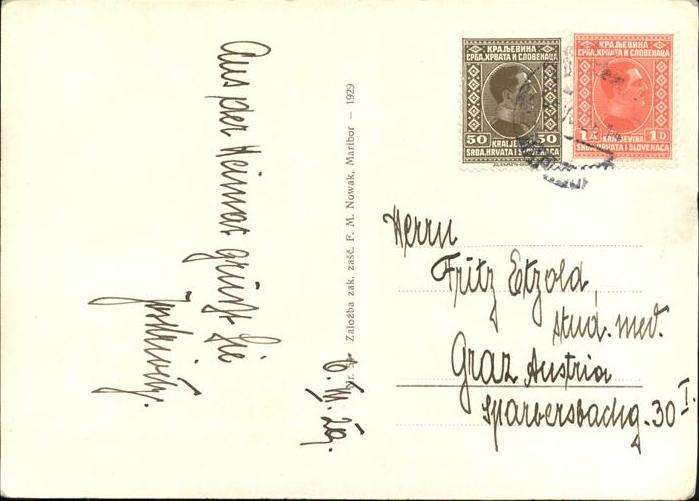 Aus der Heimat grüßt Sie
6. VI. 29.
Založba zak. zašč. F. M. Nowak, Maribor — 1929
КРАЉЕВИНА
СРБА, ХРВАТА И СЛОВЕНАЦА
50 50
KRALJEVINA
SRBA, HRVATA I SLOVENACA
КРАЉЕВИНА
СРБА, ХРВАТА И СЛОВЕНАЦА
1 Д 1 D
KRALJEVINA
SRBA, HRVATA I SLOVENACA
Herrn
Fritz Etzold,
stud. med.
Graz Austria
Sparbersbachg. 30 I.